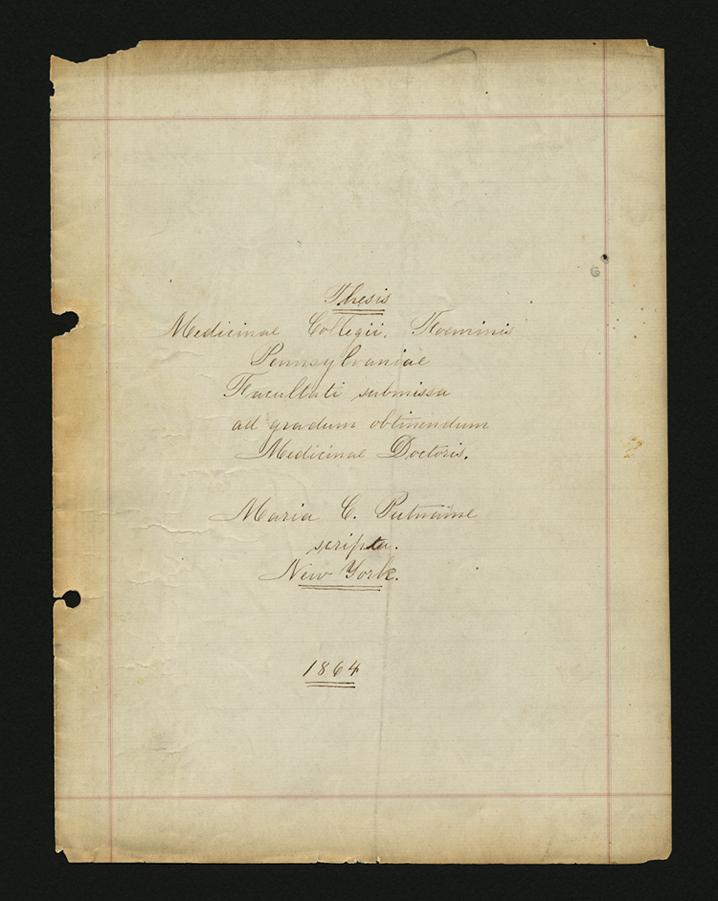 Thesis
Medicinae Collegii, Foeminis
Pennsylvaniae
Facultati submissa
ad gradum obtinendum
Medicinae Doctoris.
Maria C. Putnamine
scripta.
New York.
1864